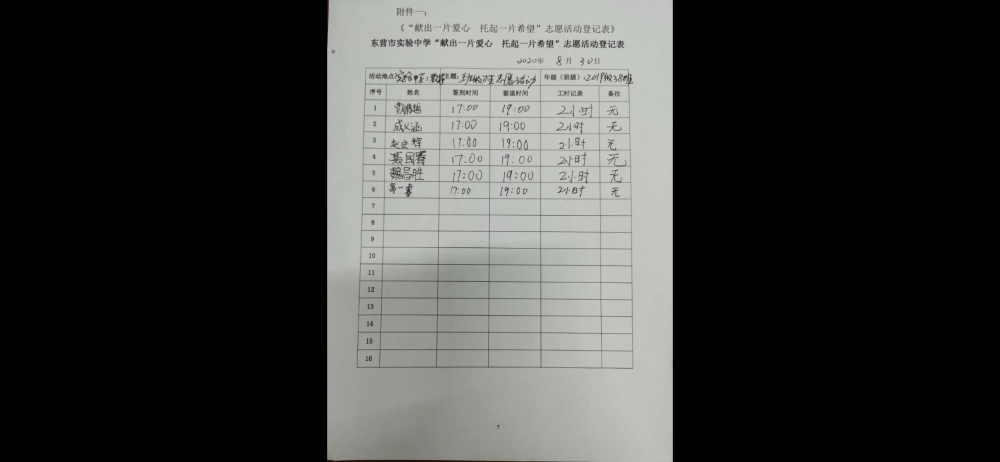 附件一：
《“献出一片爱心 托起一片希望”志愿活动登记表》
东营市实验中学“献出一片爱心 托起一片希望”志愿活动登记表
2020年 8月 30日
活动地点 主题： 志愿活动 年级（班级）：2019级38班
序号 姓名 签到时间 签退时间 工时记录 备注
1 17:00 19:00 2小时 无
2 成义涵 17:00 19:00 2小时 无
3 17:00 19:00 2小时 无
4 聂国睿 17:00 19:00 2小时 无
5 魏昌胜 17:00 19:00 2小时 无
6 17:00 19:00 2小时 无
7
8
9
10
11
12
13
14
15
16
7